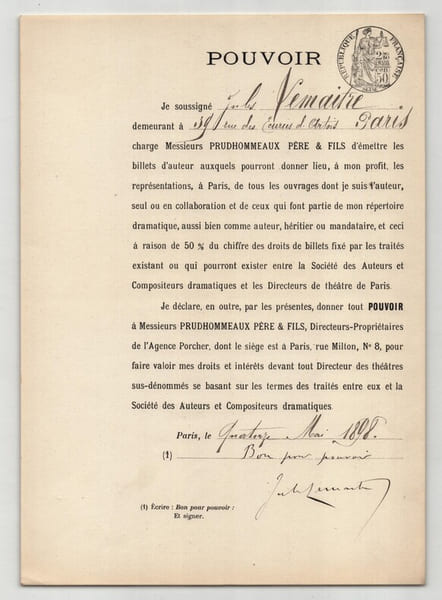 POUVOIR
RÉPUBLIQUE FRANÇAISE
50
Je soussigné Jules Lemaitre
demeurant à 39 rue des Écuries d'Artois Paris
charge Messieurs PRUDHOMMEAUX PÈRE & FILS d'émettre les
billets d'auteur auxquels pourront donner lieu, à mon profit, les
représentations, à Paris, de tous les ouvrages dont je suis l'auteur,
seul ou en collaboration et de ceux qui font partie de mon répertoire
dramatique, aussi bien comme auteur, héritier ou mandataire, et ceci
à raison de 50 % du chiffre des droits de billets fixé par les traités
existant ou qui pourront exister entre la Société des Auteurs et
Compositeurs dramatiques et les Directeurs de théâtre de Paris.
Je déclare, en outre, par les présentes, donner tout POUVOIR
à Messieurs PRUDHOMMEAUX PÈRE & FILS, Directeurs-Propriétaires
de l'Agence Porcher, dont le siège est à Paris, rue Milton, No 8, pour
faire valoir mes droits et intérêts devant tout Directeur des théâtres
sus-dénommés se basant sur les termes des traités entre eux et la
Société des Auteurs et Compositeurs dramatiques.
Paris, le Quatorze Mai 1898.
(1) Bon pour pouvoir
Jules Lemaitre
(1) Écrire : Bon pour pouvoir :
Et signer.